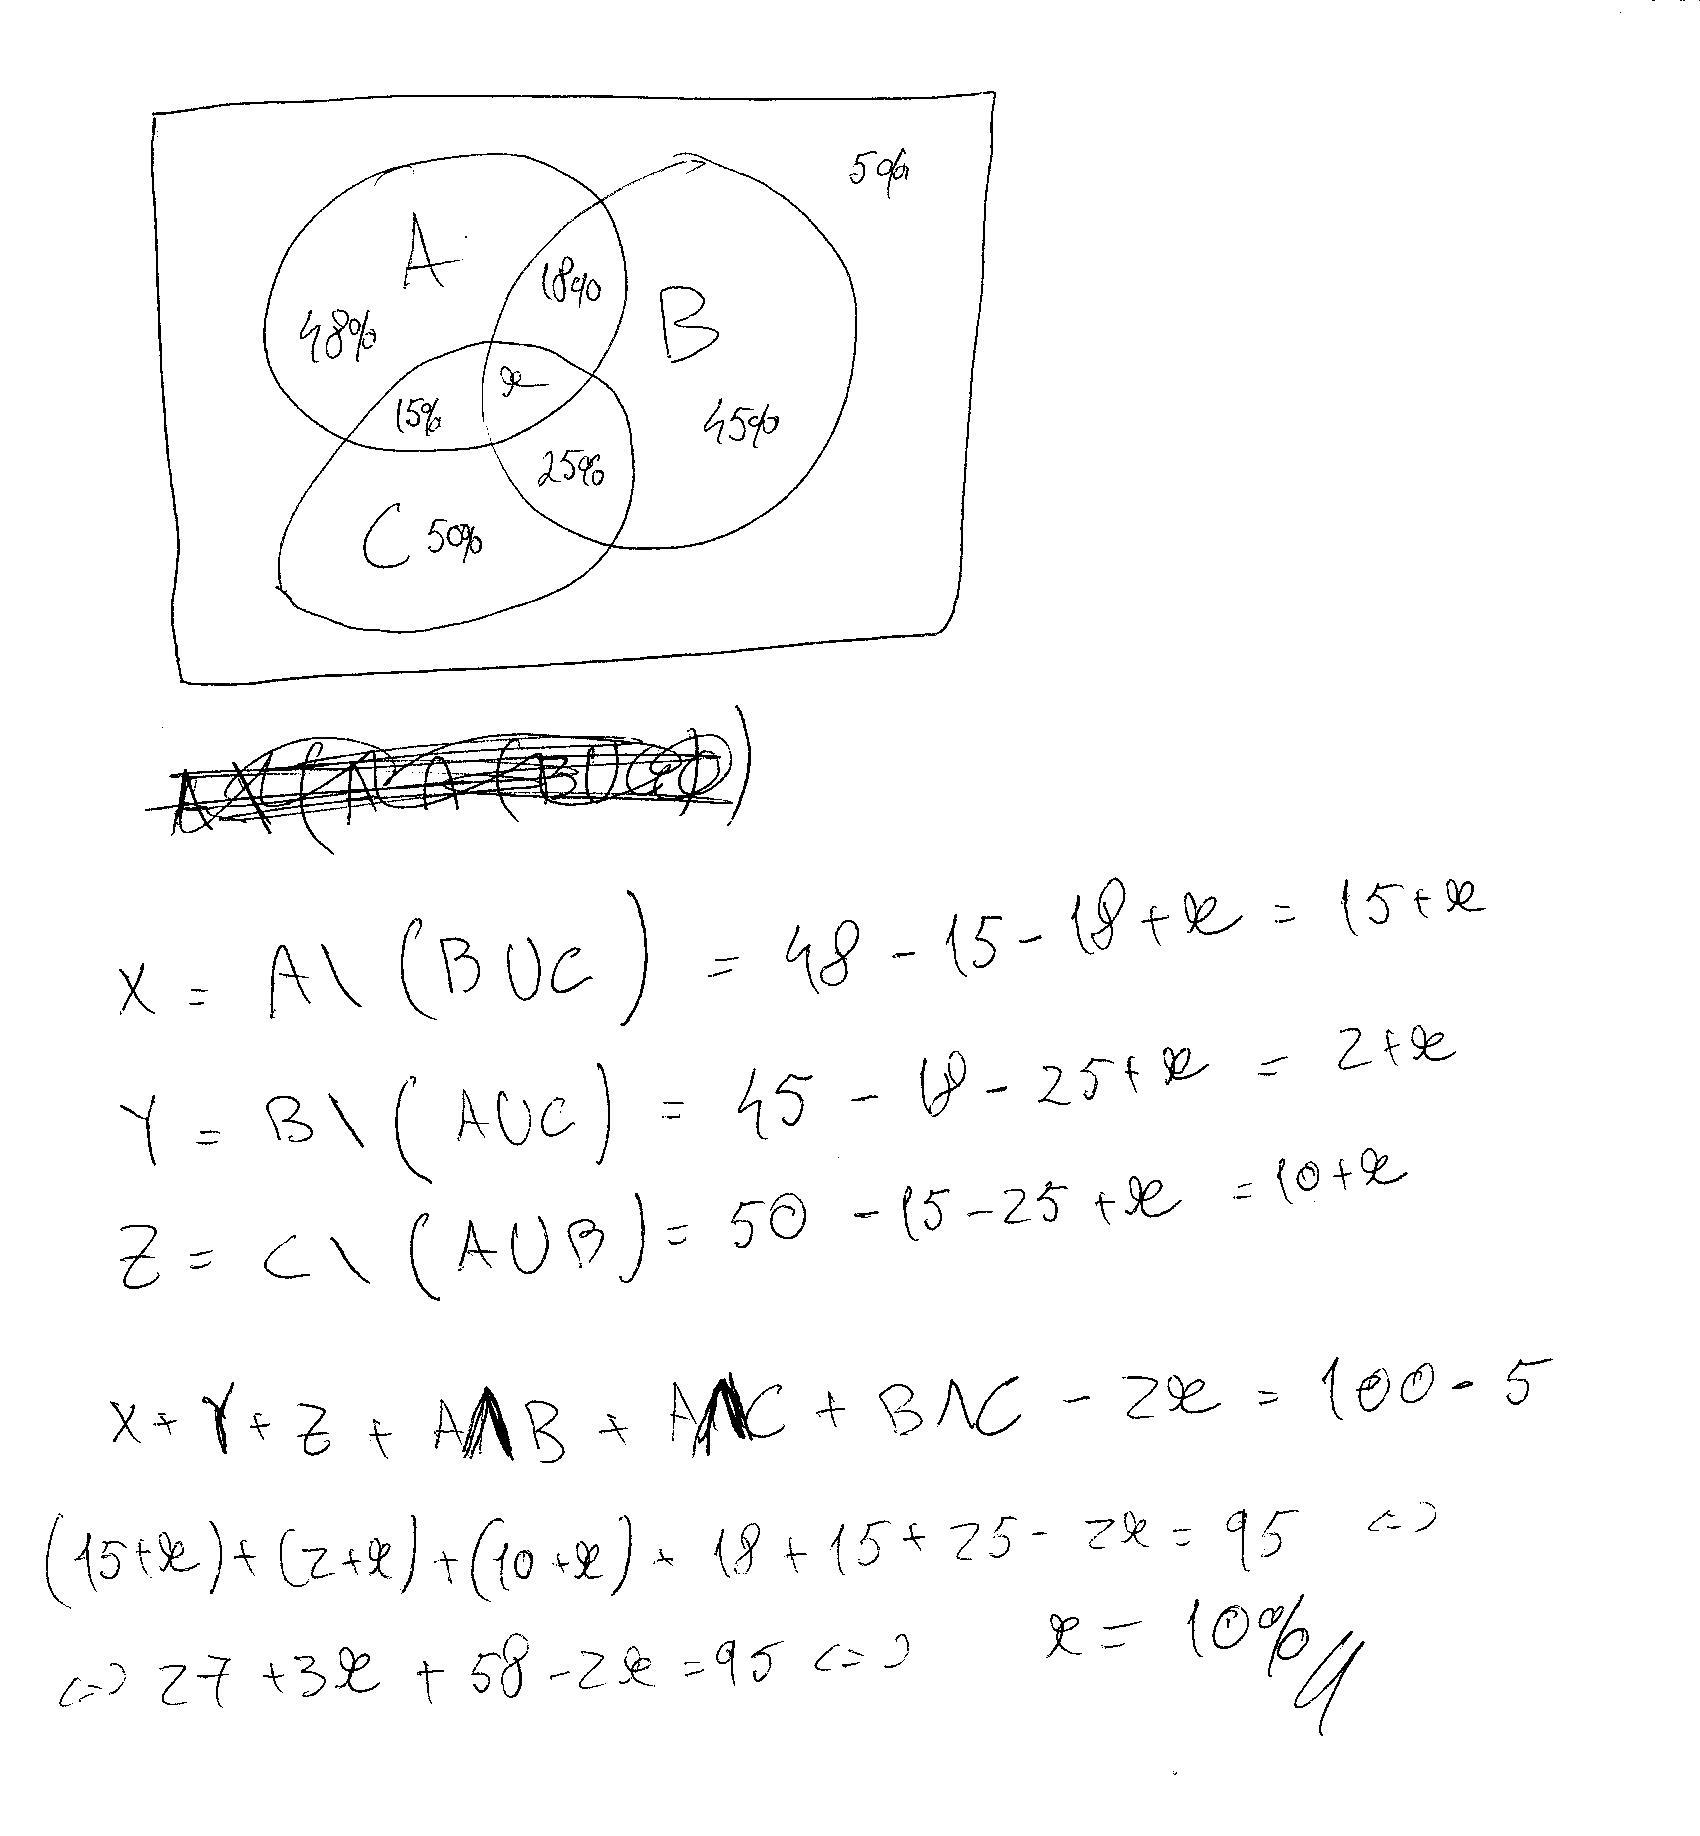 5%
A
18%
B
48%
x
15%
45%
25%
C 50%
X = A \ (B ∪ C) = 48 - 15 - 18 + x = 15 + x
Y = B \ (A ∪ C) = 45 - 18 - 25 + x = 2 + x
Z = C \ (A ∪ B) = 50 - 15 - 25 + x = 10 + x
X + Y + Z + A ∩ B + A ∩ C + B ∩ C - 2x = 100 - 5
(15 + x) + (2 + x) + (10 + x) + 18 + 15 + 25 - 2x = 95 <=>
<=> 27 + 3x + 58 - 2x = 95 <=> x = 10% //